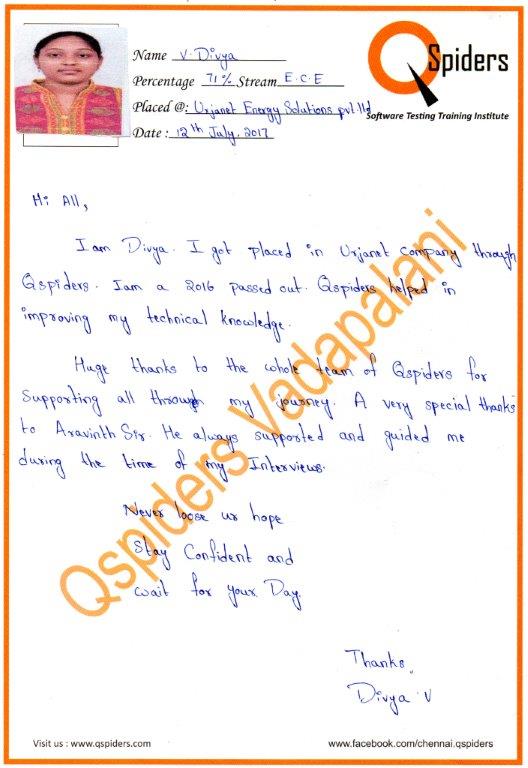 Name V. Divya
Percentage 71% Stream E.C.E
Placed @: Urjanet Energy Solutions pvt ltd
Date : 12th July, 2017
QSpiders
Software Testing Training Institute
Hi All,
I am Divya. I got placed in Urjanet company through
Qspiders. Iam a 2016 passed out. Qspiders helped in
improving my technical knowledge.
Huge thanks to the whole team of Qspiders for
Supporting all through my journey. A very special thanks
to Aravinth Sir. He always supported and guided me
during the time of my Interviews.
Never loose ur hope
Stay Confident and
wait for your Day.
Thanks,
Divya V
Qspiders Vadapalani
Visit us : www.qspiders.com
www.facebook.com/chennai.qspiders